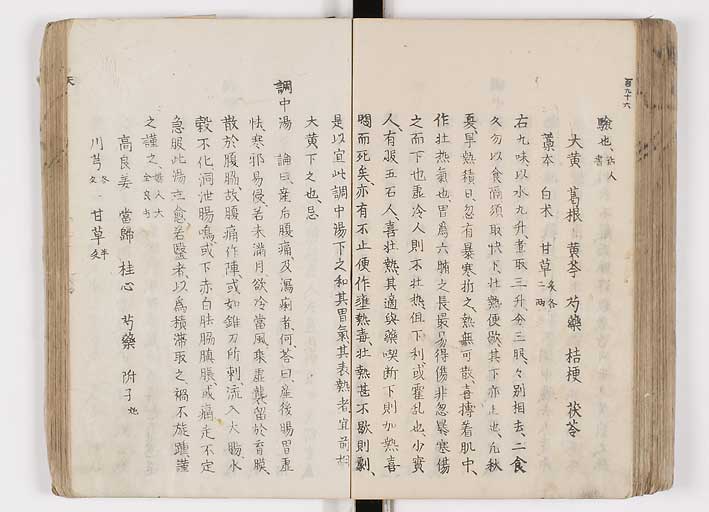 百九十六
驗也、古人書
大黄 葛根 黄芩 芍藥 桔梗 茯苓
藁本 白朮 甘草 各二兩
右九味以水九升、煮取三升、分三服、々別相去、二食
久勿以食隔須取快下、壯熱便歇、其下亦止也、凡秋
夏、旱熱積日、忽有暴寒折之、熱無可散、喜搏着肌中、
作壯熱氣也、胃爲六腑之長、最易得傷、非忽暴寒傷
之而下也、虚冷人則不壯熱、但下利、或霍乱也、少實
人、有服五石人、喜壯熱、其適與藥喫断下則加熱、喜
悶而死矣、亦有不止便作壅熱毒、壯熱甚不歇則劇、
是以宜此調中湯下之和其胃氣、其表熱者、宜前胡
大黄下之也、忌
調中湯 論曰、産后腹痛、及瀉痢者、何、答曰産後腸胃虚
怯、寒邪易侵、若未満月、欲冷當風、乘虚襲留於肓膜、
散於腹脇、故腹痛作陣、或如錐刀所刺、流入大腸、水
穀不化、洞泄腸鳴、或下赤白胠脇䐜脹、或痛走不定
急服此湯立愈、若醫者、以爲積滞取之、禍不旋踵、謹
之謹之
高良姜 當歸 桂心 芍藥 附子
川芎 各 甘草 半
天